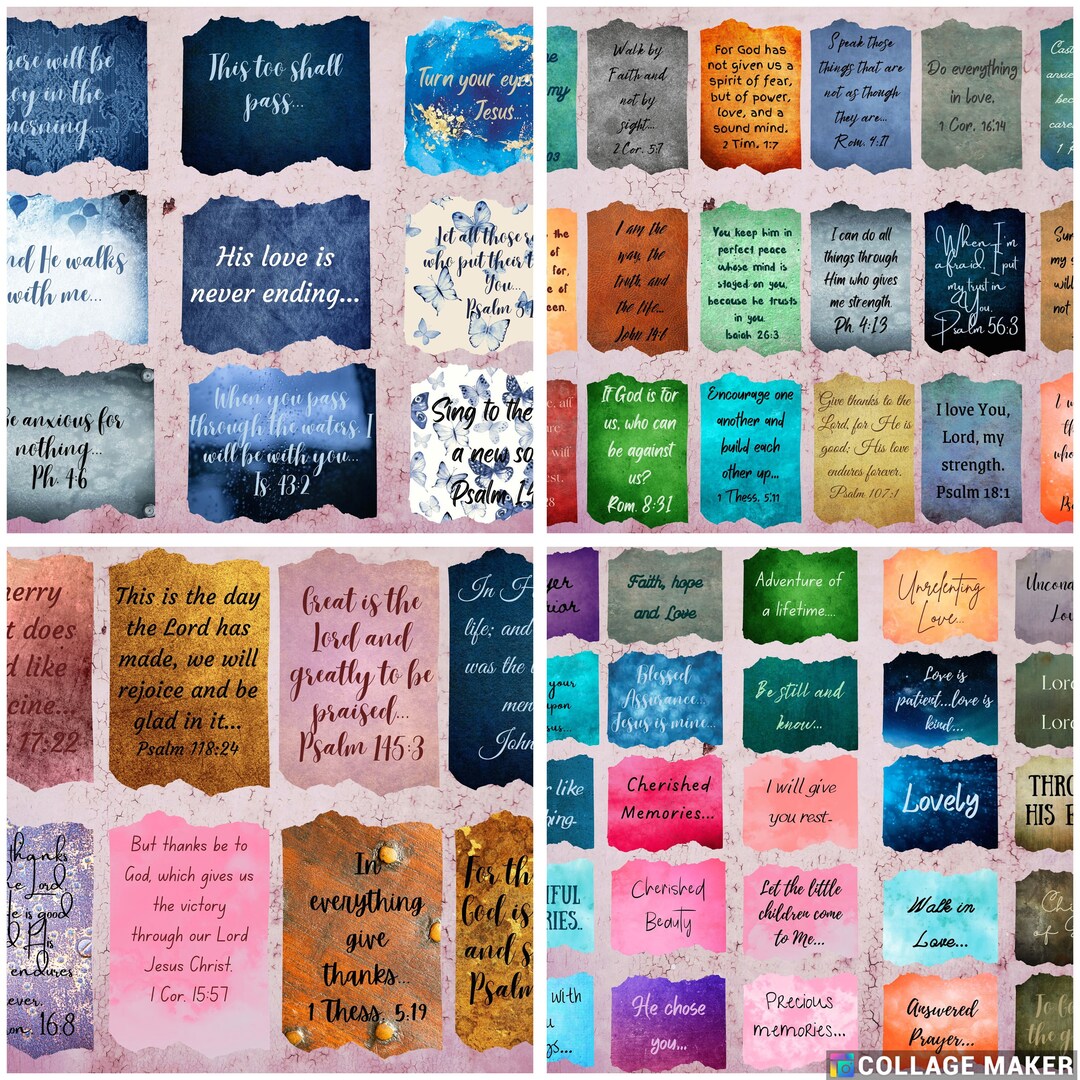 here will be
oy in the
morning...
This too shall
pass...
Turn your eyes
Jesus...
nd He walks
with me...
His love is
never ending...
Let all those
who put their t
You...
Psalm 5:1
Be anxious for
nothing...
Ph. 4:6
When you pass
through the waters, I
will be with you...
Is. 43:2
Sing to the
a new so
Psalm
Walk by
Faith and
not by
sight...
2 Cor. 5:7
For God has
not given us a
spirit of fear,
but of power,
love, and a
sound mind.
2 Tim. 1:7
Speak those
things that are
not as though
they are...
Rom. 4:17
Do everything
in love.
1 Cor. 16:14
Cast
anxie
bec
care
the
of
for,
e of
een.
I am the
way, the
truth, and
the life...
John 14:6
You keep him in
perfect peace
whose mind is
stayed on you,
because he trusts
in you.
Isaiah 26:3
I can do all
things through
Him who gives
me strength.
Ph. 4:13
When I'm
afraid, I put
my trust in
You.
Psalm 56:3
Sur
my
will
not
If God is for
us, who can
be against
us?
Rom. 8:31
Encourage one
another and
build each
other up...
1 Thess. 5:11
Give thanks to the
Lord, for He is
good; His love
endures forever.
Psalm 107:1
I love You,
Lord, my
strength.
Psalm 18:1
merry
t does
d like
cine...
17:22
This is the day
the Lord has
made, we will
rejoice and be
glad in it...
Psalm 118:24
Great is the
Lord and
greatly to be
praised...
Psalm 145:3
In H
life; and
was the
men
John
thanks
he Lord
He is good
d His
endures
ever.
16:8
But thanks be to
God, which gives us
the victory
through our Lord
Jesus Christ.
1 Cor. 15:57
In
everything
give
thanks...
1 Thess. 5:19
For th
God is
and s
Psalm
yer
rior
Faith, hope
and Love
Adventure of
a lifetime....
Unrelenting
Love...
Uncond
Lov
your
upon
sus...
Blessed
Assurance...
Jesus is mine...
Be still and
know...
Love is
patient...love is
kind...
Lor
Lor
r like
hing-
Cherished
Memories...
I will give
you rest-
Lovely
THRO
HIS
IFUL
RIES..
Cherished
Beauty
Let the little
children come
to Me...
Walk in
Love...
Ch
of
with
u
gs...
He chose
you...
Precious
memories...
Answered
Prayer...
To
the g
COLLAGE MAKER